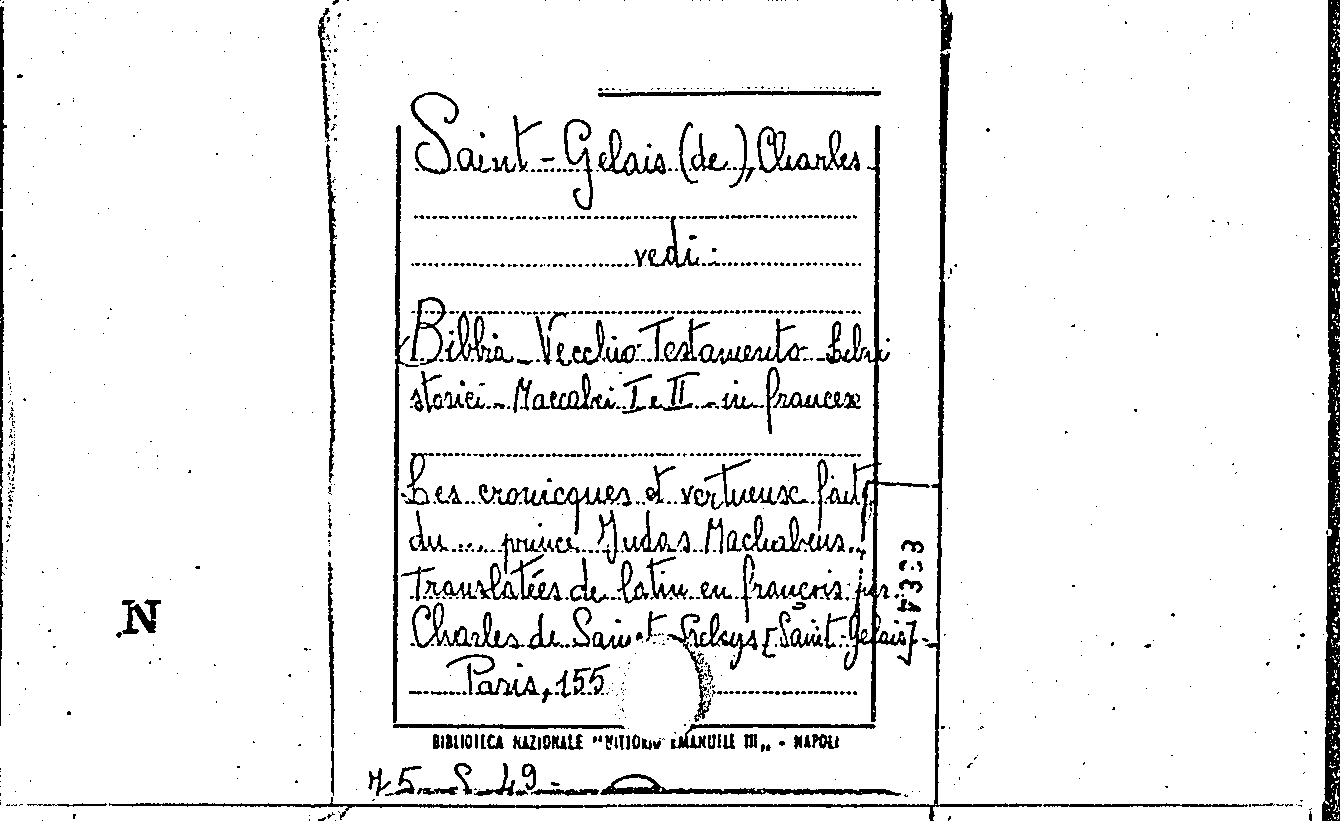 Saint-Gelais (de), Charles
vedi:
Bibbia - Vecchio Testamento - Libri
storici - Maccabei I e II - in francese
Les cronicques et vertueux faitz
du ... prince Judas Machabeus...
translatées de latin en françois par
Charles de Sainct-Gelays [Saint-Gelais] -
Paris, 155
BIBLIOTECA NAZIONALE "VITTORIO EMANUELE III„ - NAPOLI
N